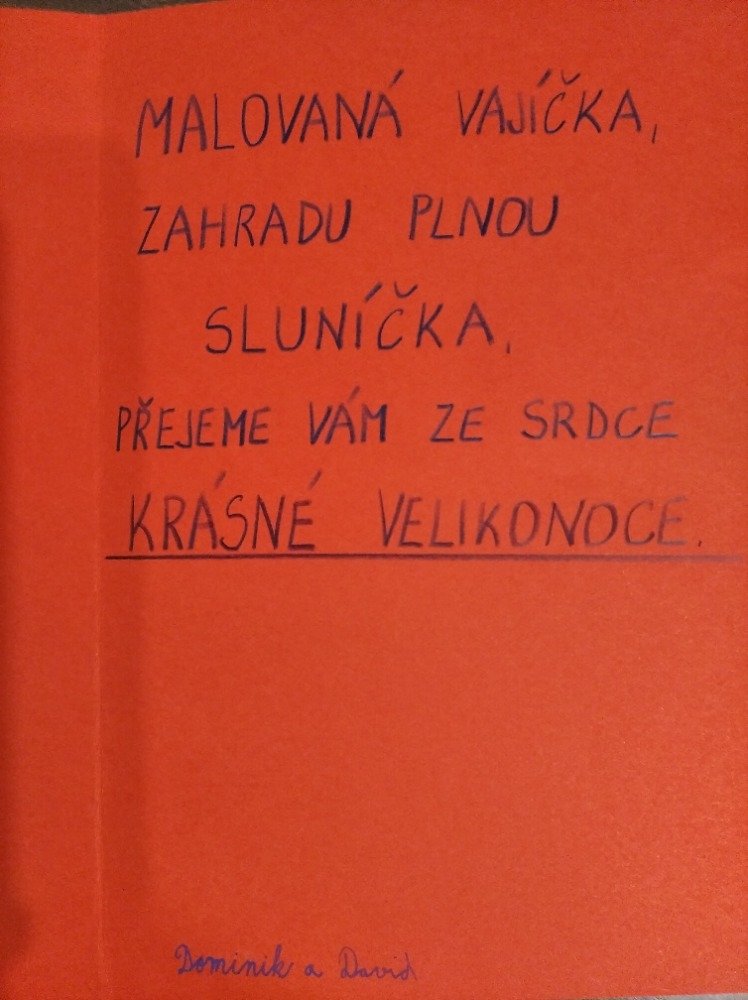 MALOVANÁ VAJÍČKA,
ZAHRADU PLNOU
SLUNÍČKA,
PŘEJEME VÁM ZE SRDCE
KRÁSNÉ VELIKONOCE.
Dominik a David